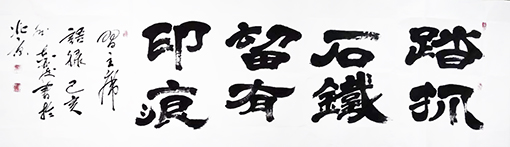 踏石留印
抓鐵有痕
習主席
語錄己亥
書於
北京